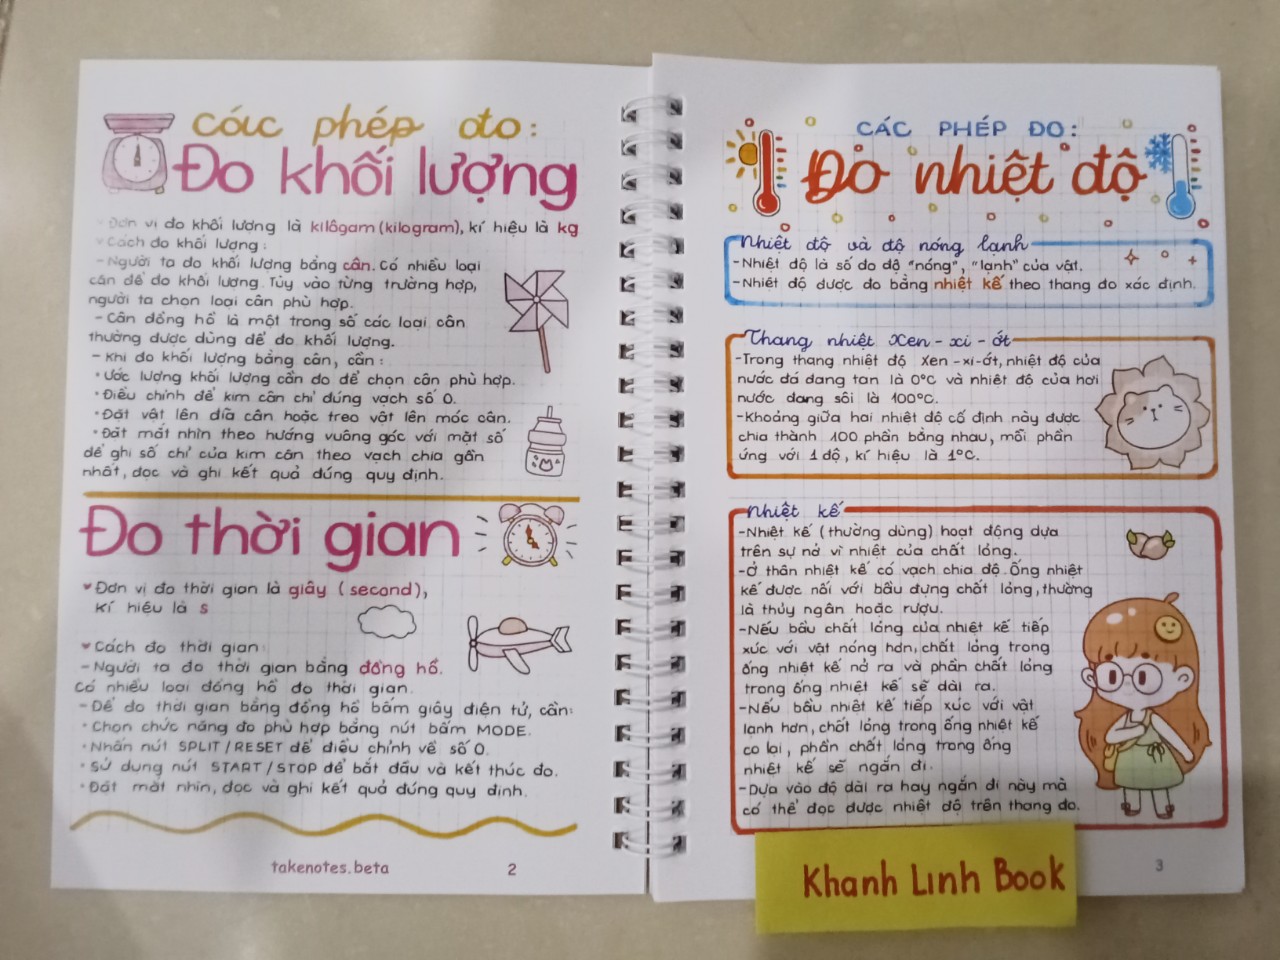 Các phép đo:
Đo khối lượng
Đơn vị đo khối lượng là kilôgam (kilogram), kí hiệu là kg
Cách đo khối lượng:
- Người ta đo khối lượng bằng cân. Có nhiều loại
cân để đo khối lượng. Tùy vào từng trường hợp,
người ta chọn loại cân phù hợp.
- Cân đồng hồ là một trong số các loại cân
thường được dùng để đo khối lượng.
- Khi đo khối lượng bằng cân, cần:
• Ước lượng khối lượng cần đo để chọn cân phù hợp.
• Điều chỉnh để kim cân chỉ đúng vạch số 0.
• Đặt vật lên đĩa cân hoặc treo vật lên móc cân.
• Đặt mắt nhìn theo hướng vuông góc với mặt số
để ghi số chỉ của kim cân theo vạch chia gần
nhất, đọc và ghi kết quả đúng quy định.
Đo thời gian
Đơn vị đo thời gian là giây (second),
kí hiệu là s
Cách đo thời gian:
- Người ta đo thời gian bằng đồng hồ.
Có nhiều loại đồng hồ đo thời gian.
- Để đo thời gian bằng đồng hồ bấm giây điện tử, cần:
• Chọn chức năng đo phù hợp bằng nút bấm MODE.
• Nhấn nút SPLIT/RESET để điều chỉnh về số 0.
• Sử dụng nút START/STOP để bắt đầu và kết thúc đo.
• Đặt mắt nhìn, đọc và ghi kết quả đúng quy định.
takenotes.beta
2
CÁC PHÉP ĐO:
Đo nhiệt độ
Nhiệt độ và độ nóng lạnh
- Nhiệt độ là số đo độ "nóng", "lạnh" của vật.
- Nhiệt độ được đo bằng nhiệt kế theo thang đo xác định.
Thang nhiệt Xen-xi-ớt
- Trong thang nhiệt độ Xen-xi-ớt, nhiệt độ của
nước đá đang tan là 0°C và nhiệt độ của hơi
nước đang sôi là 100°C.
- Khoảng giữa hai nhiệt độ cố định này được
chia thành 100 phần bằng nhau, mỗi phần
ứng với 1 độ, kí hiệu là 1°C.
Nhiệt kế
- Nhiệt kế (thường dùng) hoạt động dựa
trên sự nở vì nhiệt của chất lỏng.
- Ở thân nhiệt kế có vạch chia độ. Ống nhiệt
kế được nối với bầu đựng chất lỏng, thường
là thủy ngân hoặc rượu.
- Nếu bầu chất lỏng của nhiệt kế tiếp
xúc với vật nóng hơn, chất lỏng trong
ống nhiệt kế nở ra và phần chất lỏng
trong ống nhiệt kế sẽ dài ra.
- Nếu bầu nhiệt kế tiếp xúc với vật
lạnh hơn, chất lỏng trong ống nhiệt kế
co lại, phần chất lỏng trong ống
nhiệt kế sẽ ngắn đi.
- Dựa vào độ dài ra hay ngắn đi này mà
có thể đọc được nhiệt độ trên thang đo.
3
Khanh Linh Book